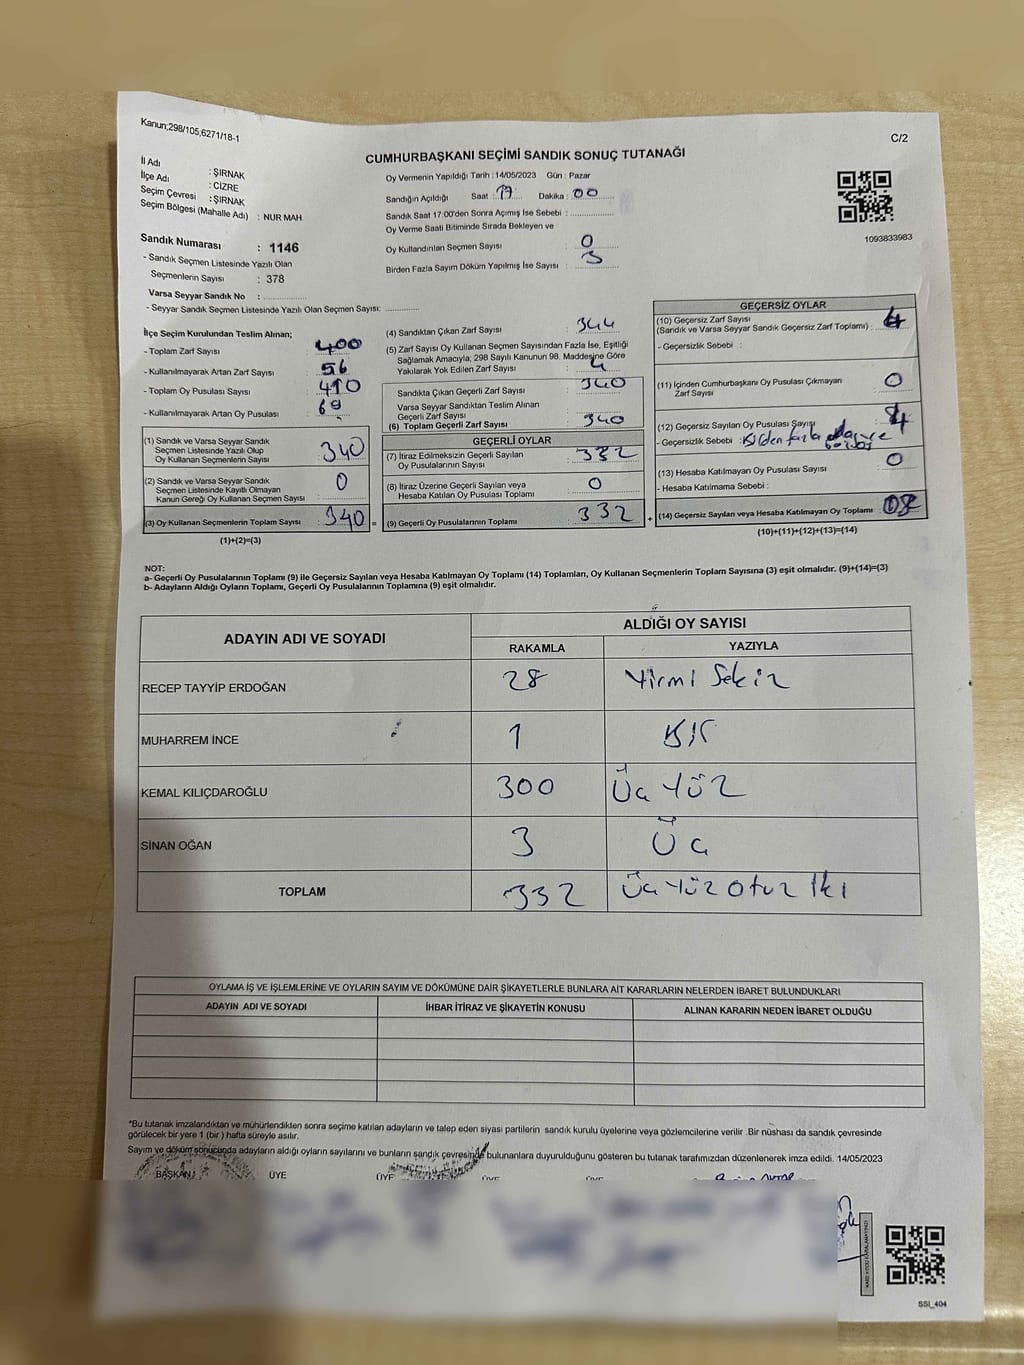 Kanun;298/105,6271/18-1
C/2
CUMHURBAŞKANI SEÇİMİ SANDIK SONUÇ TUTANAĞI
İl Adı : ŞIRNAK
İlçe Adı : CİZRE
Seçim Çevresi : ŞIRNAK
Seçim Bölgesi (Mahalle Adı) : NUR MAH.
Sandık Numarası : 1146
- Sandık Seçmen Listesinde Yazılı Olan
Seçmenlerin Sayısı : 378
Varsa Seyyar Sandık No :
- Seyyar Sandık Seçmen Listesinde Yazılı Olan Seçmen Sayısı:
Oy Vermenin Yapıldığı Tarih : 14/05/2023 Gün : Pazar
Sandığın Açıldığı Saat : 17 Dakika : 00
Sandık Saat 17:00'den Sonra Açımış İse Sebebi :
Oy Verme Saati Bitiminde Sırada Bekleyen ve
Oy Kullandırılan Seçmen Sayısı : 0
Birden Fazla Sayım Döküm Yapılmış İse Sayısı : 3
1093833983
İlçe Seçim Kurulundan Teslim Alınan;
- Toplam Zarf Sayısı : 400
- Kullanılmayarak Artan Zarf Sayısı : 56
- Toplam Oy Pusulası Sayısı : 410
- Kullanılmayarak Artan Oy Pusulası : 69
(1) Sandık ve Varsa Seyyar Sandık
Seçmen Listesinde Yazılı Olup
Oy Kullanan Seçmenlerin Sayısı : 340
(2) Sandık ve Varsa Seyyar Sandık
Seçmen Listesinde Kayıtlı Olmayan
Kanun Gereği Oy Kullanan Seçmen Sayısı : 0
(3) Oy Kullanan Seçmenlerin Toplam Sayısı : 340 =
(1)+(2)=(3)
(4) Sandıktan Çıkan Zarf Sayısı : 344
(5) Zarf Sayısı Oy Kullanan Seçmen Sayısından Fazla İse, Eşitliği
Sağlamak Amacıyla; 298 Sayılı Kanunun 98. Maddesine Göre
Yakılarak Yok Edilen Zarf Sayısı : 4
Sandıkta Çıkan Geçerli Zarf Sayısı : 340
Varsa Seyyar Sandıktan Teslim Alınan
Geçerli Zarf Sayısı :
(6) Toplam Geçerli Zarf Sayısı : 340
GEÇERLİ OYLAR
(7) İtiraz Edilmeksizin Geçerli Sayılan
Oy Pusulalarının Sayısı : 332
(8) İtiraz Üzerine Geçerli Sayılan veya
Hesaba Katılan Oy Pusulası Toplamı : 0
(9) Geçerli Oy Pusulalarının Toplamı : 332 +
GEÇERSİZ OYLAR
(10) Geçersiz Zarf Sayısı
(Sandık ve Varsa Seyyar Sandık Geçersiz Zarf Toplamı) : 4
- Geçersizlik Sebebi :
(11) İçinden Cumhurbaşkanı Oy Pusulası Çıkmayan
Zarf Sayısı : 0
(12) Geçersiz Sayılan Oy Pusulası Sayısı : 4
- Geçersizlik Sebebi :
(13) Hesaba Katılmayan Oy Pusulası Sayısı : 0
- Hesaba Katılmama Sebebi :
(14) Geçersiz Sayılan veya Hesaba Katılmayan Oy Toplamı : 08
(10)+(11)+(12)+(13)=(14)
NOT:
a- Geçerli Oy Pusulalarının Toplamı (9) ile Geçersiz Sayılan veya Hesaba Katılmayan Oy Toplamı (14) Toplamları, Oy Kullanan Seçmenlerin Toplam Sayısına (3) eşit olmalıdır. (9)+(14)=(3)
b- Adayların Aldığı Oyların Toplamı, Geçerli Oy Pusulalarının Toplamına (9) eşit olmalıdır.
ADAYIN ADI VE SOYADI
ALDIĞI OY SAYISI
RAKAMLA YAZIYLA
RECEP TAYYİP ERDOĞAN 28 Yirmi Sekiz
MUHARREM İNCE 1 Bir
KEMAL KILIÇDAROĞLU 300 Üç Yüz
SİNAN OĞAN 3 Üç
TOPLAM 332 Üç Yüz Otuz İki
OYLAMA İŞ VE İŞLEMLERİNE VE OYLARIN SAYIM VE DÖKÜMÜNE DAİR ŞİKAYETLERLE BUNLARA AİT KARARLARIN NELERDEN İBARET BULUNDUKLARI
ADAYIN ADI VE SOYADI İHBAR İTİRAZ VE ŞİKAYETİN KONUSU ALINAN KARARIN NEDEN İBARET OLDUĞU
*Bu tutanak imzalandıktan ve mühürlendikten sonra seçime katılan adayların ve talep eden siyasi partilerin sandık kurulu üyelerine veya gözlemcilerine verilir. Bir nüshası da sandık çevresinde
görülecek bir yere 1 (bir) hafta süreyle asılır.
Sayım ve döküm sonucunda adayların aldığı oyların sayılarını ve bunların sandık çevresinde bulunanlara duyurulduğunu gösteren bu tutanak tarafımızdan düzenlenerek imza edildi. 14/05/2023
BAŞKAN ÜYE ÜYE ÜYE ÜYE
SSI_404